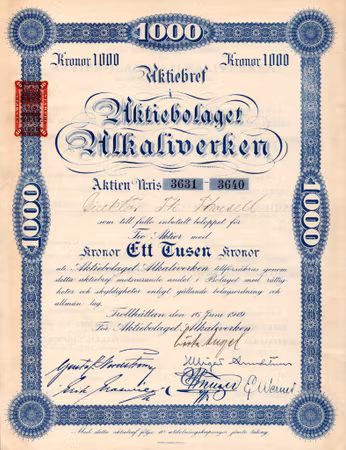 1000
Kronor 1000 Kronor 1000
Aktiebref
i
Aktiebolaget
Alkaliverken
Aktien N:ris 3631 - 3640
som till fullo inbetalt beloppet för
Tio Aktier med
Kronor Ett Tusen Kronor
uti Aktiebolaget Alkaliverken tillförsäkras genom
detta aktiebref motsvarande andel i Bolaget med rättig-
heter och skyldigheter enligt gällande bolagsordning och
allmän lag.
Trollhättan den 16 Juni 1919
För Aktiebolaget Alkaliverken
Gustaf
G Werner
Med detta aktiebref följa utdelningskuponger jämte talong
1000
1000